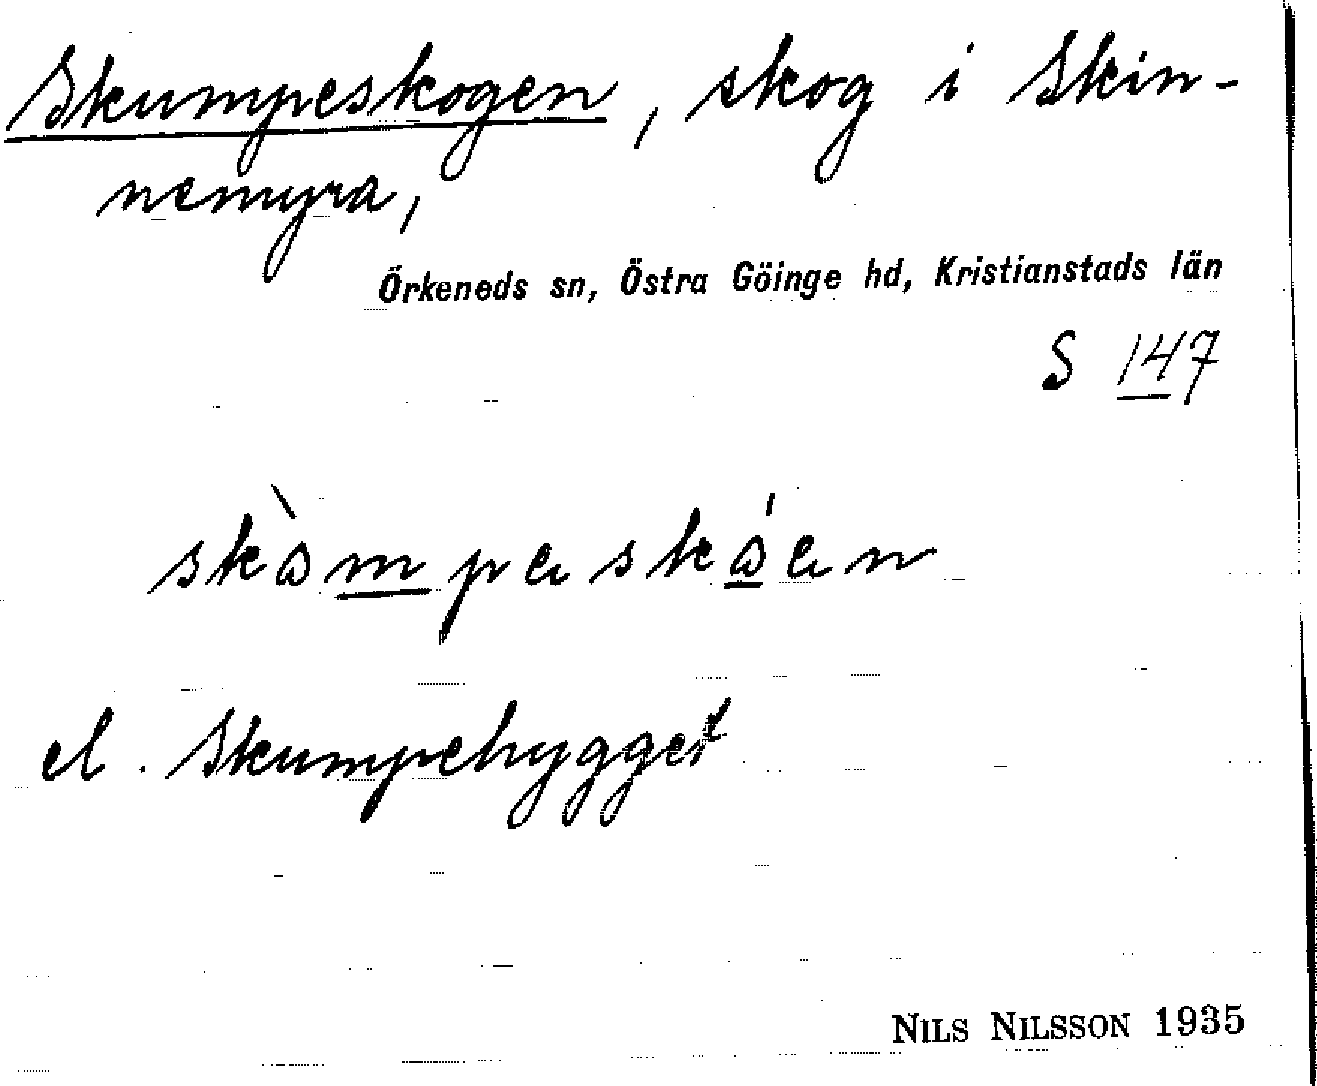 Skumpeskogen, skog i Skin-
nemyra,
Örkeneds sn, Östra Göinge hd, Kristianstads län
S 147
skàmpaskáan
el. Skumpehygget
NILS NILSSON 1935